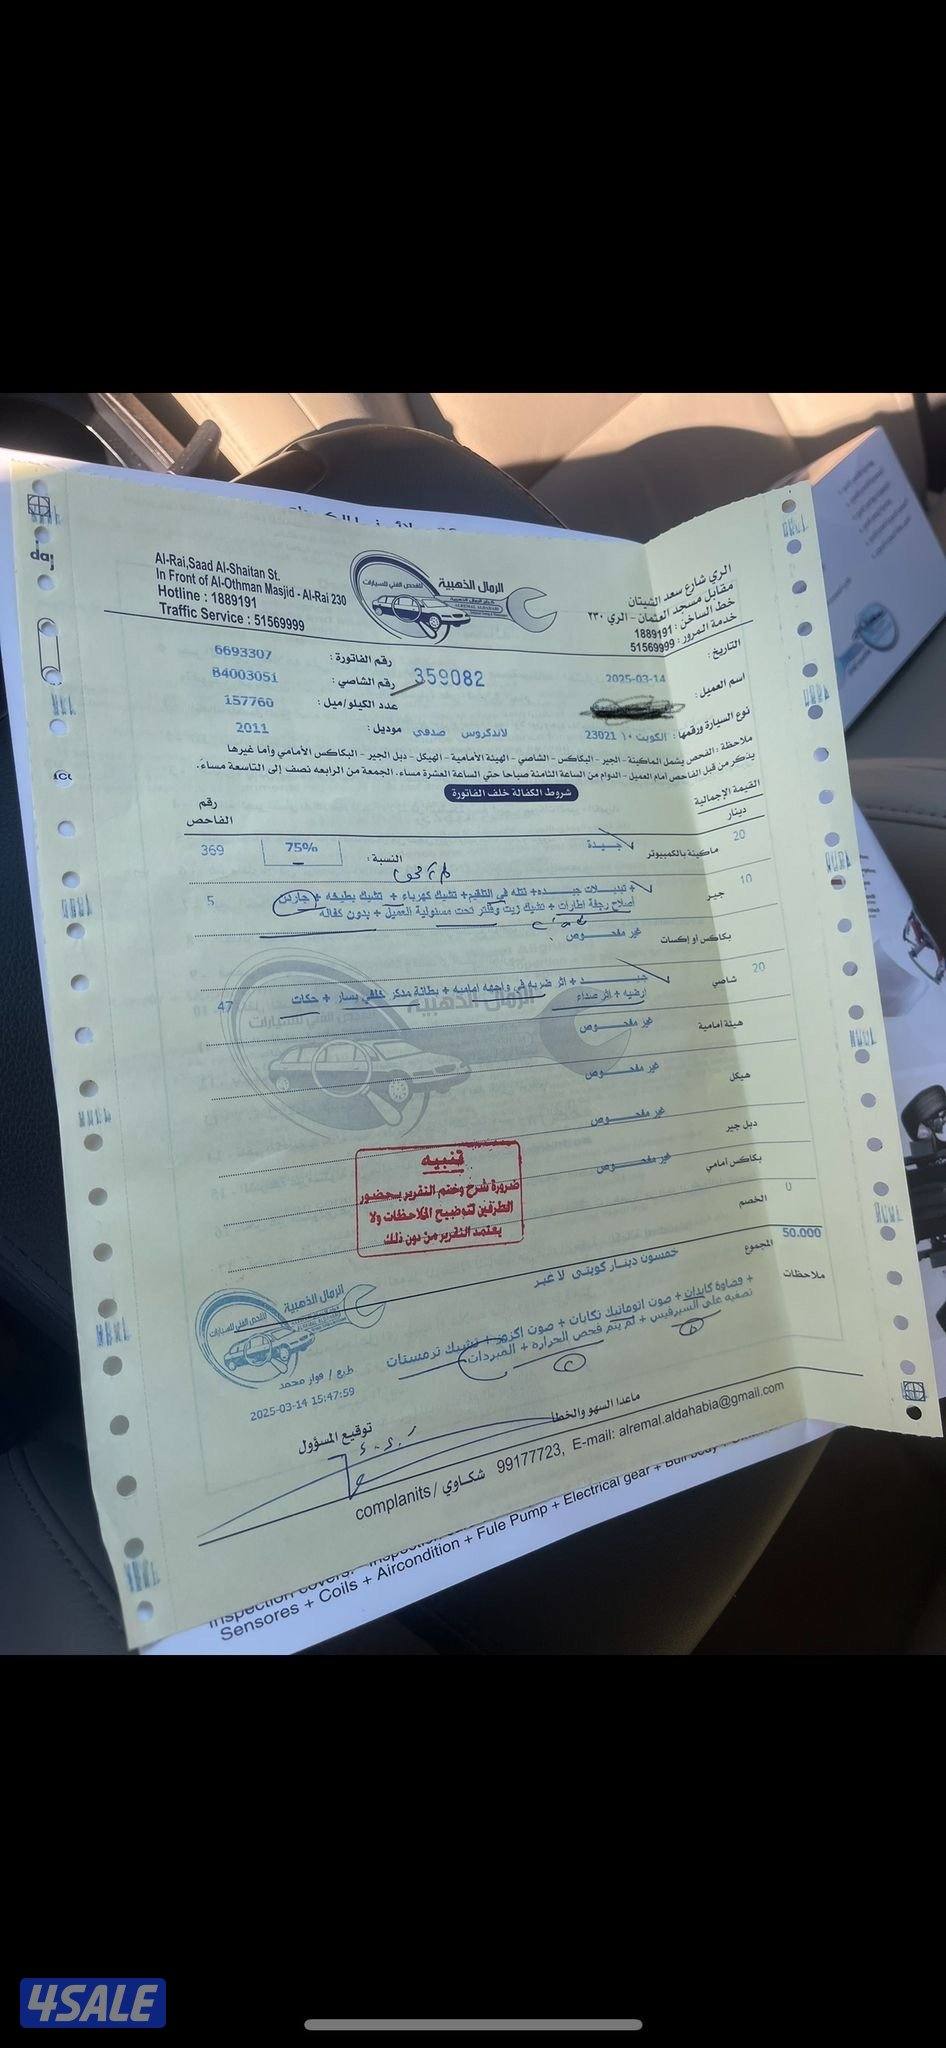 Al-Rai,Saad Al-Shaitan St.
In Front of Al-Othman Masjid - Al-Rai 230
Hotline : 1889191
Traffic Service : 51569999
الرمال الذهبية
للفحص الفني للسيارات
الري شارع سعد الشيتان
مقابل مسجد العثمان - الري ٢٣٠
خط الساخن : 1889191
خدمة المرور : 51569999
التاريخ : 2025-03-14
رقم الفاتورة : 6693307
359082
اسم العميل :
رقم الشاصي : B4003051
عدد الكيلو/ميل : 157760
نوع السيارة ورقمها : الكويت ١٠ 23021 لاندكروس صدفي
موديل : 2011
ملاحظة : الفحص يشمل الماكينة - الجير - البكاكس - الشاصي - الهيئة الأمامية - الهيكل - دبل الجير - البكاكس الأمامي وأما غيرها
يذكر من قبل الفاحص أمام العميل - الدوام من الساعة الثامنة صباحا حتى الساعة العشرة مساء. الجمعة من الرابعه نصف إلى التاسعة مساءً.
شروط الكفالة خلف الفاتورة
القيمة الإجمالية
دينار
رقم الفاحص
20 ماكينة بالكمبيوتر جيدة النسبة : 75% 369
10 جير + تبديلات جيده + نتله في التلقيم + تشيك كهرباء + تشيك بطيخه + جاردن 5
اصلاح رجفة اطارات + تشيك زيت وفلتر تحت مسئولية العميل + بدون كفالة
بكاكس أو إكسات غير مفحوص
20 شاصي جيد + اثر ضربه في واجهه اماميه + بطانة مدكر خلفي يسار + حكات 47
ارضيه + اثر صداء
هيئة أمامية غير مفحوص
هيكل غير مفحوص
دبل جير غير مفحوص
بكاكس أمامي غير مفحوص
تنبيه
ضرورة شرح وختم التقرير بحضور
الطرفين لتوضيح الملاحظات ولا
يعتمد التقرير من دون ذلك
الخصم 0
المجموع 50.000
خمسون دينار كويتي لا غير
ملاحظات
+ قضاوة كايدات + صوت اتوماتيك تكايات + صوت اكزوز + تشيك ترمستات
تصفيه على السيرفيس + لم يتم فحص الحراره + المبردات
الرمال الذهبية
للفحص الفني للسيارات
طبع / فواز محمد
2025-03-14 15:47:59
ماعدا السهو والخطأ
توقيع المسؤول
complanits / شكاوي 99177723, E-mail: alremal.aldahabia@gmail.com
Sensores + Coils + Aircondition + Fule Pump + Electrical gear +
daj
4SALE